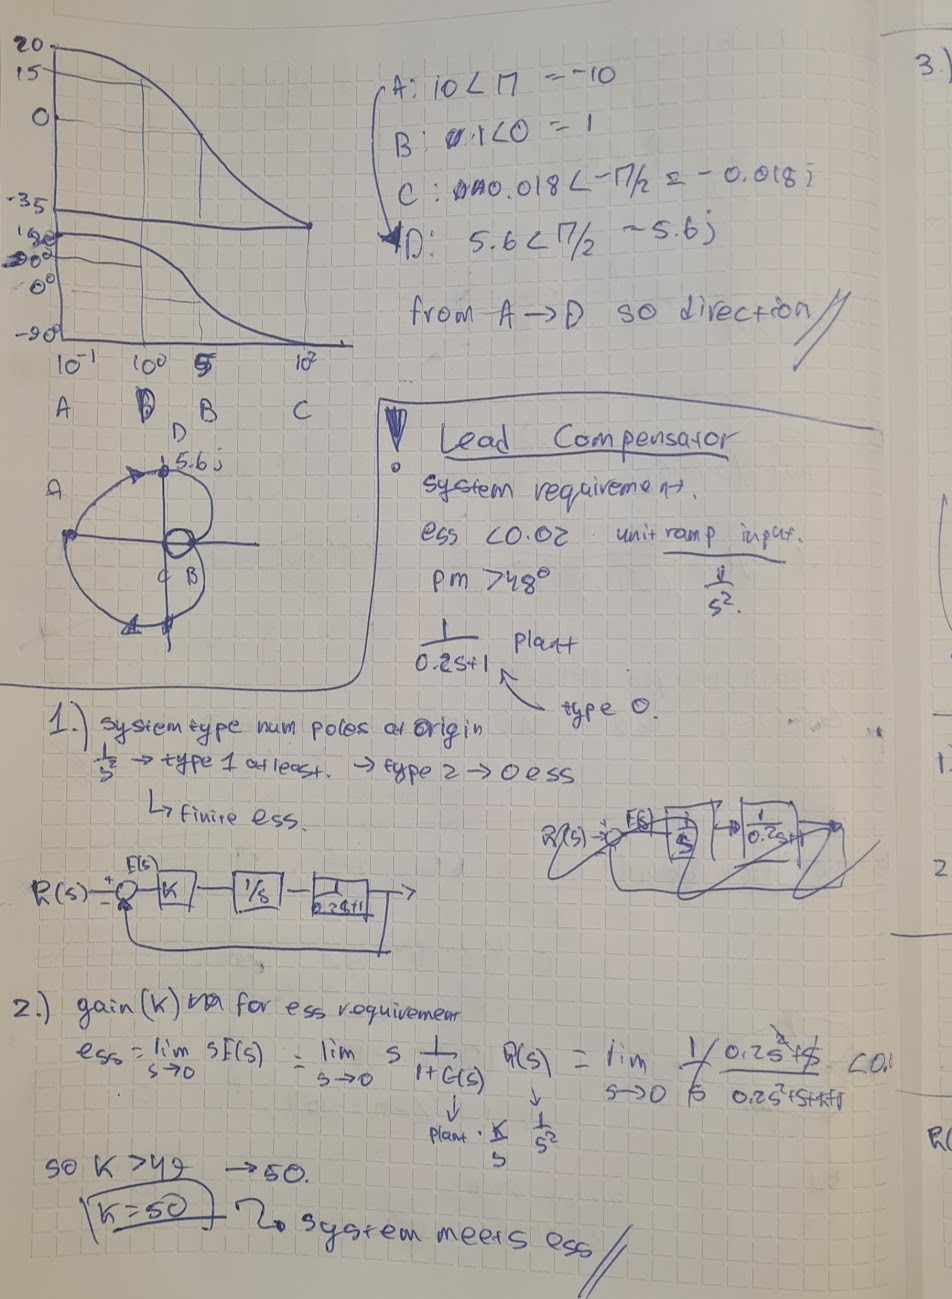 20
15
0
-35
180
90°
0°
-90
10⁻¹ 10⁰ 5 10²
A D B C
A: 10∠Π = -10
B: 1∠0 = 1
C: 0.018∠-Π/2 = -0.018j
D: 5.6∠Π/2 ~5.6j
from A → D so direction //
D
5.6j
A
C B
! Lead Compensator
system requirement.
ess <0.02 unit ramp input.
Pm >48° 1/s².
1/(0.2s+1) plant
type 0.
1.) system type num poles at origin
1/s² → type 1 at least. → type 2 → 0 ess
↳ finite ess.
R(s) + E(s) 1/s 1/0.2s+1
R(s) + - E(s) K 1/s 1/0.2s+1
2.) gain (K) for ess requirement
ess = lim s→0 sE(s) = lim s→0 s 1/(1+G(s)) R(s) = lim s→0 1/s (0.2s²+s)/(0.2s²+s+k) <0.
plant · K/s 1/s²
so K >49 → 50.
K=50 → system meets ess //
3.)
1.
2
R(